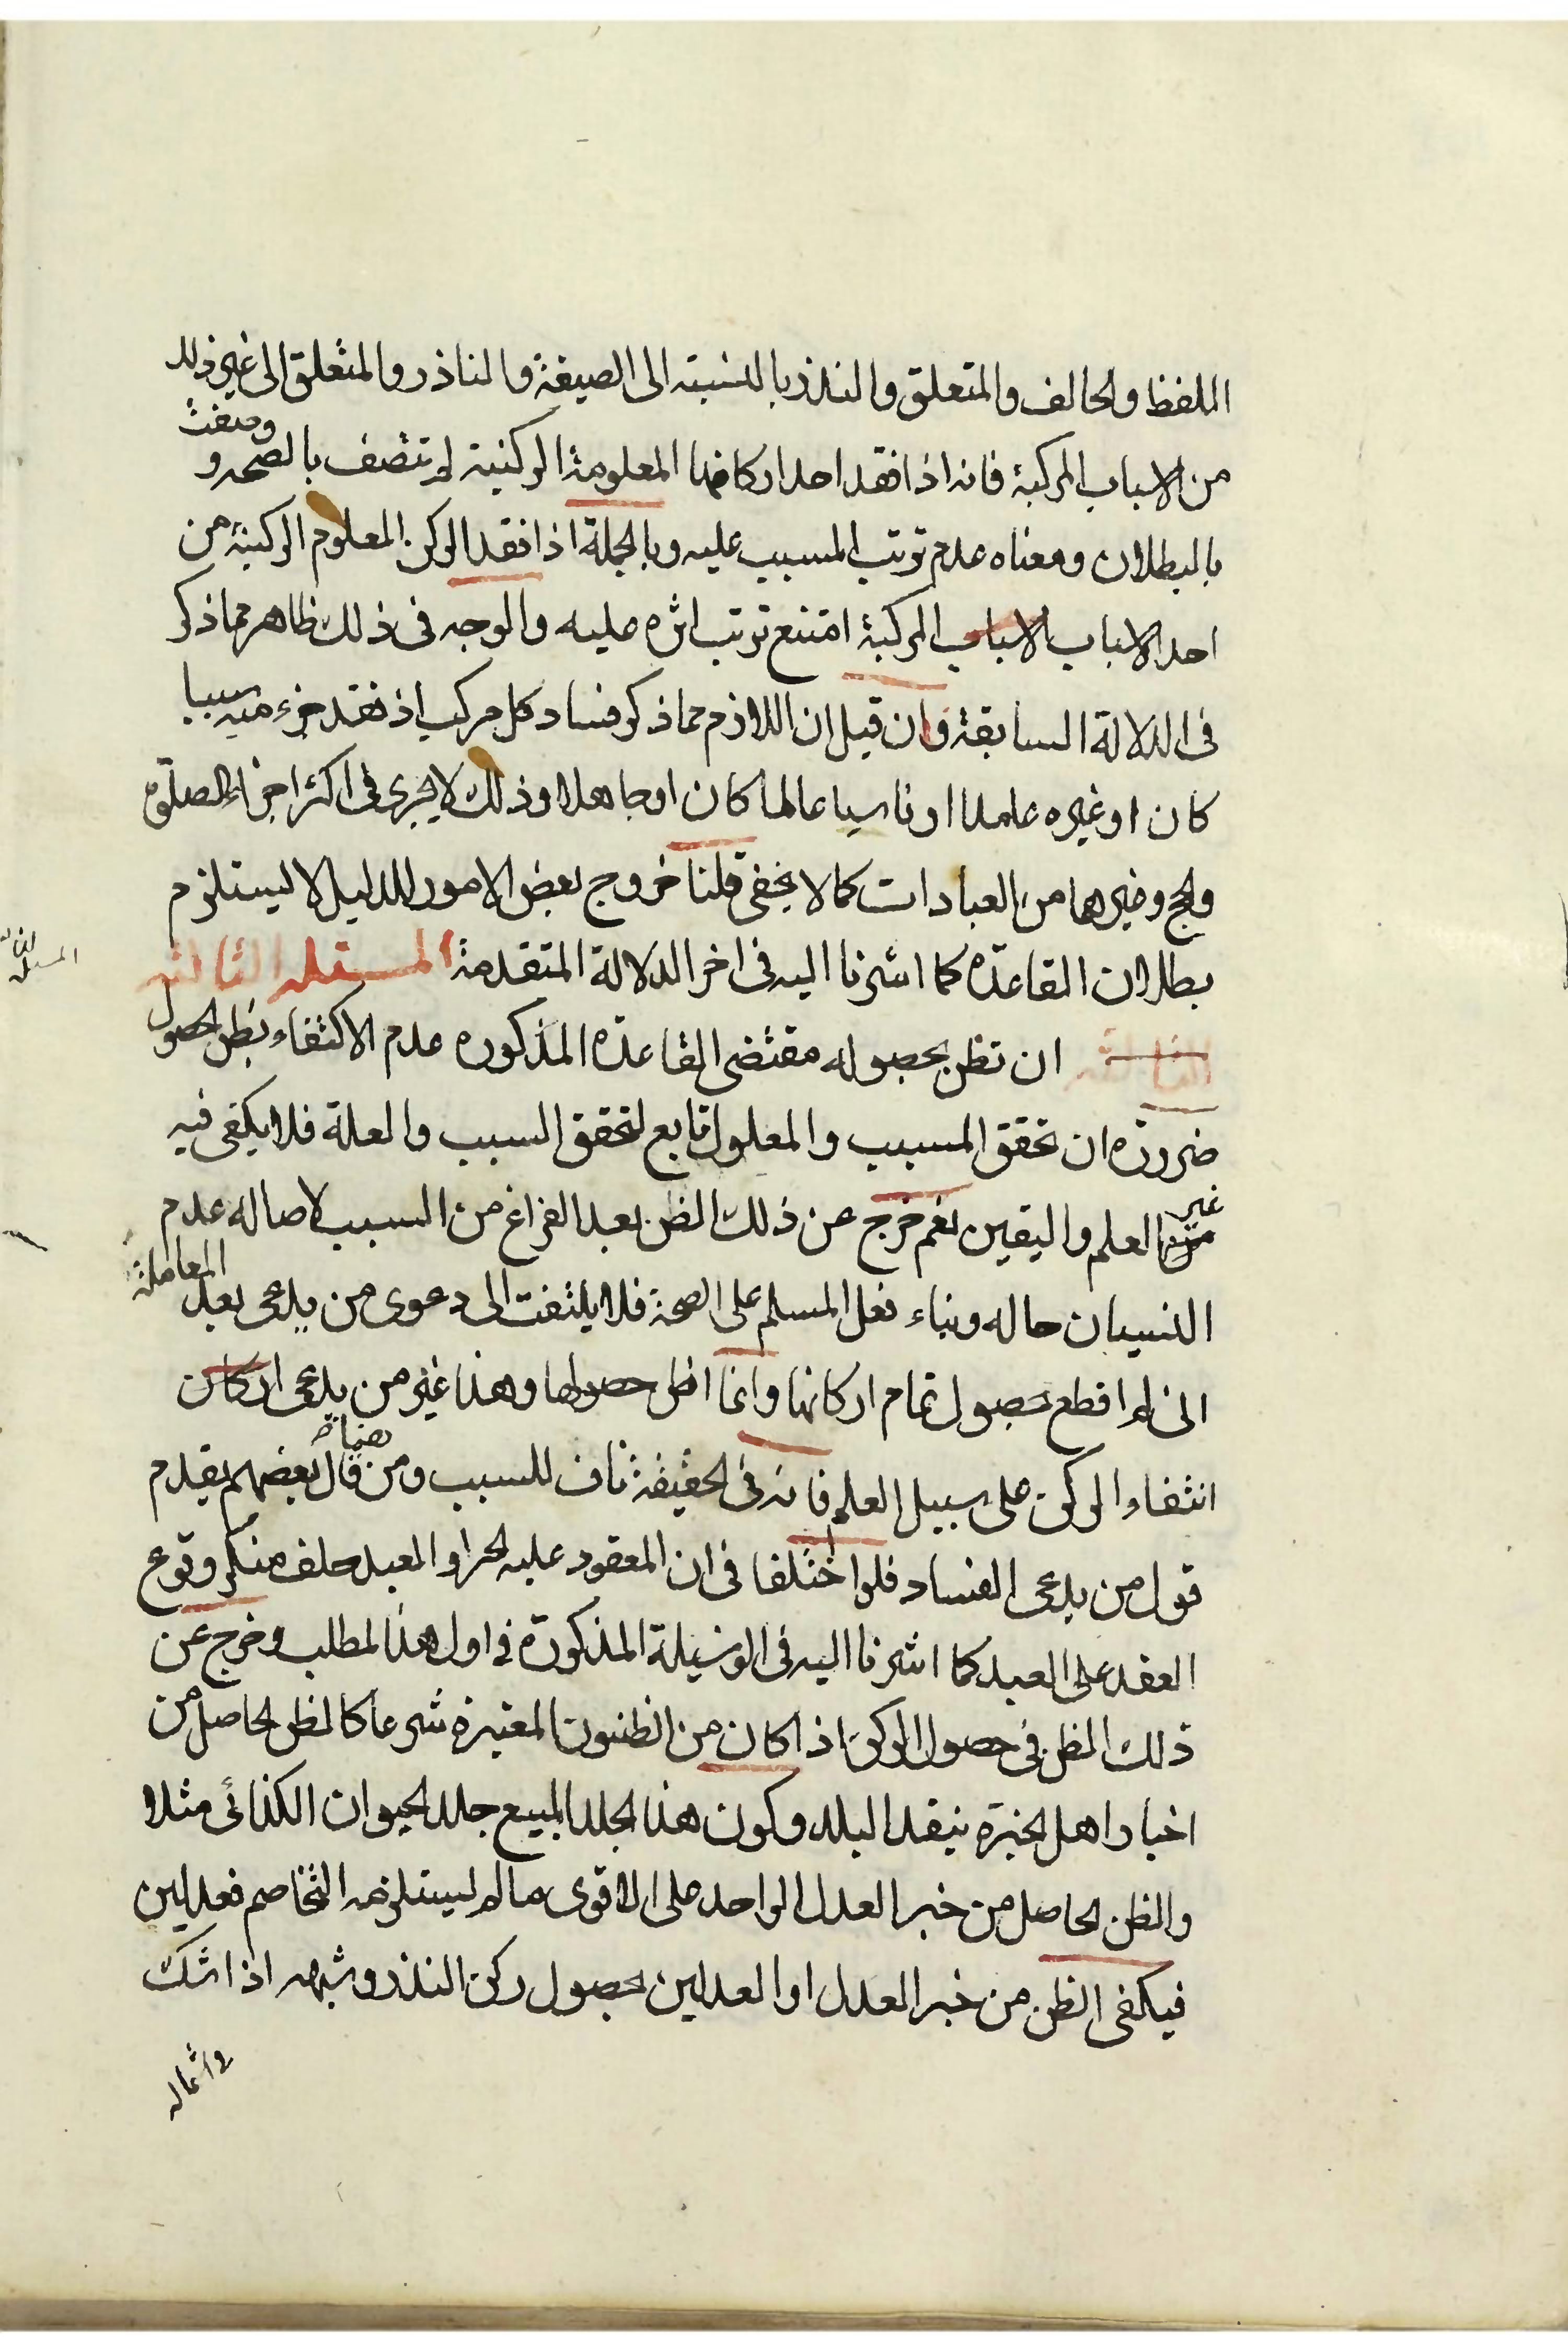 اللفظ والحالف والمتعلق والنذر بالنسبته الى الصيغة والناذر والمتعلق الى غير ذلك
من الاسباب المركبة فانه اذا فقد احد اركانها المعلومة الركنية لم تتصف بالصحه و
وصفت
بالبطلان ومعناه عدم ترتب المسبب عليه وبالجملة اذا فقد الركن المعلوم الركنية من
احد الاسباب الاسباب المركبة امتنع ترتب اثره عليه والوجه فى ذلك ظاهر مما ذكر
فى الدلالة السابقة وان قيل ان اللازم مما ذكر فساد كل مركب اذ فقد جزء منه سببا
كان او غيره عامدا او ناسيا عالما كان او جاهلا وذلك لا يجرى فى اكثر اجزاء الصلوة
والحج وغيرهما من العبادات كما لا يخفى قلنا خروج بعض الامور للدليل لا يستلزم
بطلان القاعدة كما اشرنا اليه فى اخر الدلالة المتقدمة المسئله الثالثه
المسئله الثالثة
الثالثة ان تظن بحصوله مقتضى القاعدة المذكوره عدم الاكتفاء بظن الحصول
ضرورة ان تحقق المسبب والمعلول تابع لتحقق السبب والعلة فلا يكفى فيه
غير
العلم واليقين نعم خرج عن ذلك الظن بعد الفراغ من السبب لاصاله عدم
النسيان حاله وبناء فعل المسلم على الصحة فلا يلتفت الى دعوى من يدعى بعد المعاملة
انى لم اقطع بحصول تمام اركانها وانما اظن حصولها وهذا غير من يدعى اركان
انتفاء الركن على سبيل العلم فانه فى الحقيقة ناف للسبب ومن قال بعضهم بتقدم
قول من يدعى الفساد فلو اختلفا فى ان المعقود عليه الحر او العبد حلف منكر وقوع
العقد على العبد كما اشرنا اليه فى الوسيلة المذكورة فى اول هذا المطلب وخرج عن
ذلك الظن فى حصول الركن اذا كان من الظنون المعتبرة شرعا كالظن الحاصل من
اخبار اهل الخبرة بنقد البلد وكون هذا الجلد المبيع جلد الحيوان الكذائى مثلا
والظن الحاصل من خبر العدل الواحد على الاقوى ما لم يستلزمه التخاصم فعدلين
فيكفى الظن من خبر العدل او العدلين بحصول ركن النذر وشبهه اذا شك
وامثاله